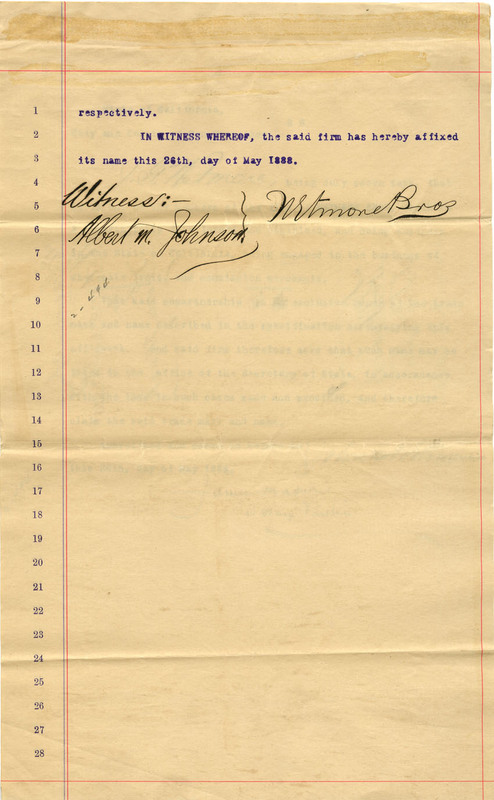 1 respectively.
2 IN WITNESS WHEREOF, the said firm has hereby affixed
3 its name this 26th, day of May 1888.
4
5 Witness:- Wetmore Bros
6 Albert M. Johnson
7
8
9
2-494
10
11
12
13
14
15
16
17
18
19
20
21
22
23
24
25
26
27
28